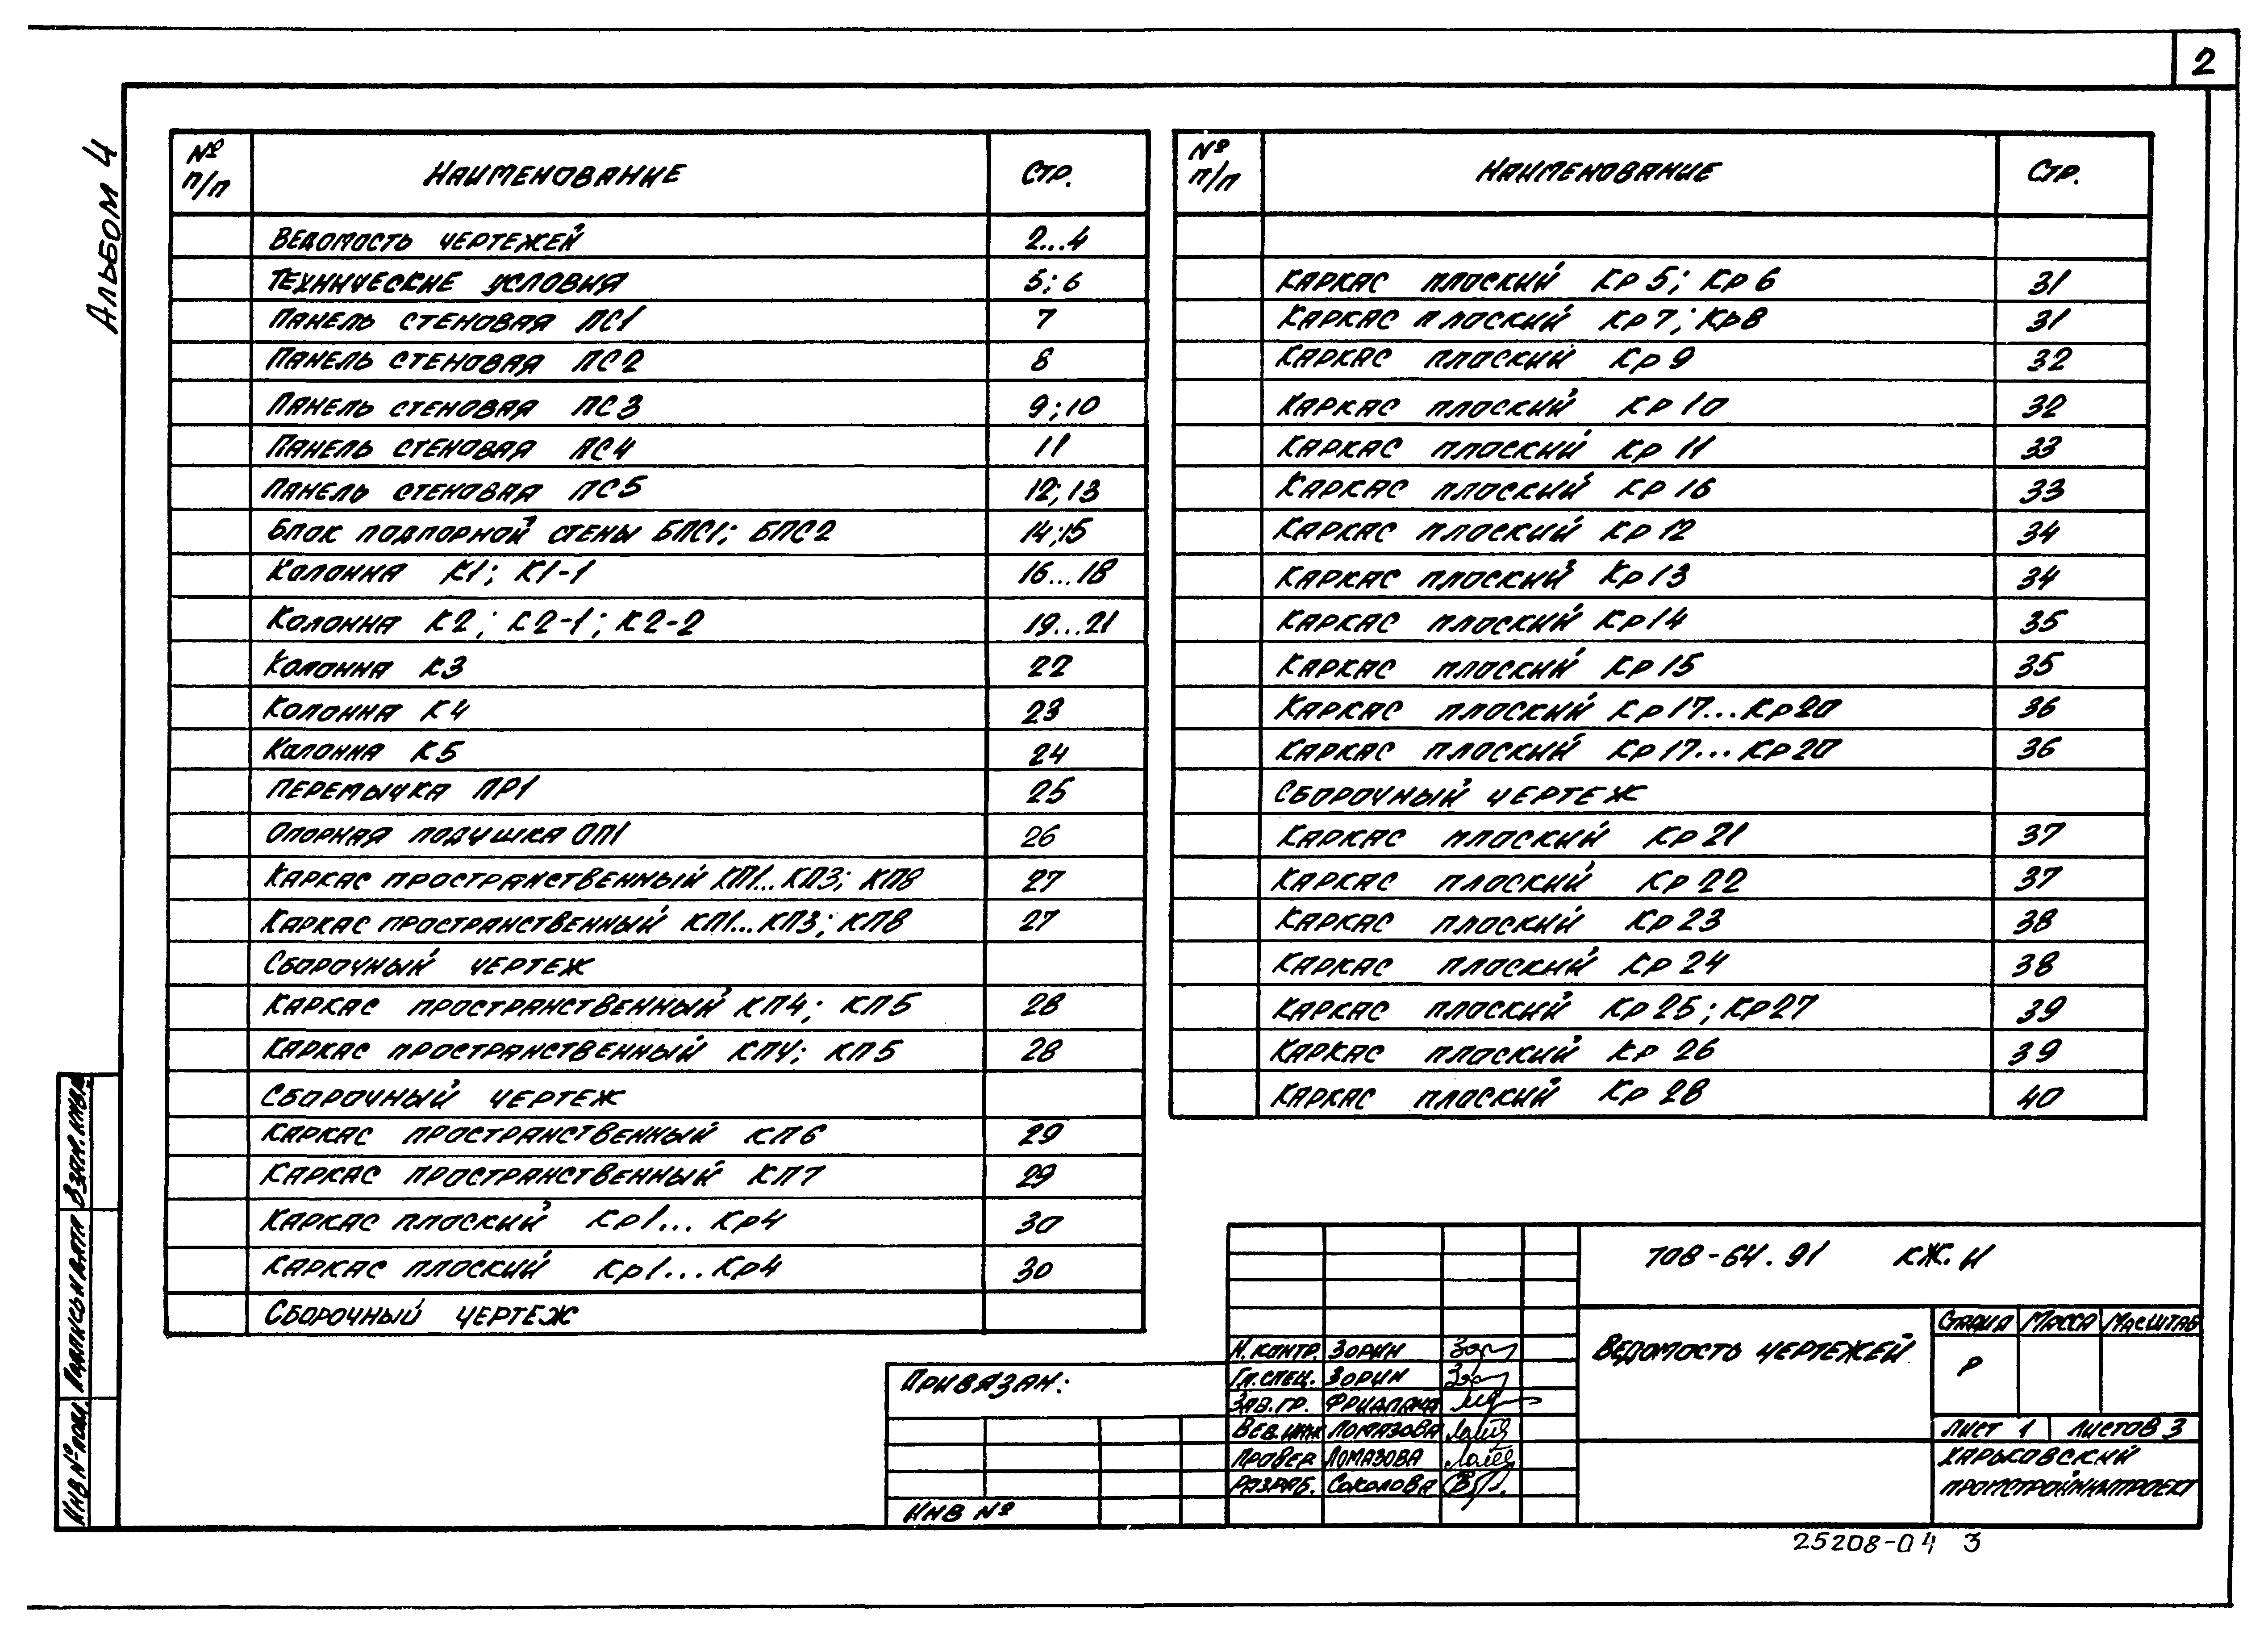 2
Альбом 4
№ п/п Наименование Стр.
Ведомость чертежей 2...4
Технические условия 5; 6
Панель стеновая ПС1 7
Панель стеновая ПС2 8
Панель стеновая ПС3 9; 10
Панель стеновая ПС4 11
Панель стеновая ПС5 12; 13
Блок подпорной стены БПС1; БПС2 14; 15
Колонна К1; К1-1 16...18
Колонна К2; К2-1; К2-2 19...21
Колонна К3 22
Колонна К4 23
Колонна К5 24
Перемычка ПР1 25
Опорная подушка ОП1 26
Каркас пространственный КП1...КП3; КП8 27
Каркас пространственный КП1...КП3; КП8 27
Сборочный чертеж
Каркас пространственный КП4; КП5 28
Каркас пространственный КП4; КП5 28
Сборочный чертеж
Каркас пространственный КП6 29
Каркас пространственный КП7 29
Каркас плоский Кр1...Кр4 30
Каркас плоский Кр1...Кр4 30
Сборочный чертеж
№ п/п Наименование Стр.
Каркас плоский Кр5; Кр6 31
Каркас плоский Кр7; Кр8 31
Каркас плоский Кр9 32
Каркас плоский Кр10 32
Каркас плоский Кр11 33
Каркас плоский Кр16 33
Каркас плоский Кр12 34
Каркас плоский Кр13 34
Каркас плоский Кр14 35
Каркас плоский Кр15 35
Каркас плоский Кр17...Кр20 36
Каркас плоский Кр17...Кр20 36
Сборочный чертеж
Каркас плоский Кр21 37
Каркас плоский Кр22 37
Каркас плоский Кр23 38
Каркас плоский Кр24 38
Каркас плоский Кр25; Кр27 39
Каркас плоский Кр26 39
Каркас плоский Кр28 40
Взам. инв.
Подпись и дата
Инв № подл.
Привязан:
Инв №
708-64.91 КЖ.И
Н. контр. Зорин
Гл. спец. Зорин
Зав. гр. Фридлянд
Вед. инж Ломазова
Провер Ломазова
Разраб. Соколова
Ведомость чертежей
Стадия Масса Масштаб
Р
Лист 1 Листов 3
Харьковский
Промстройниипроект
25208-04 3